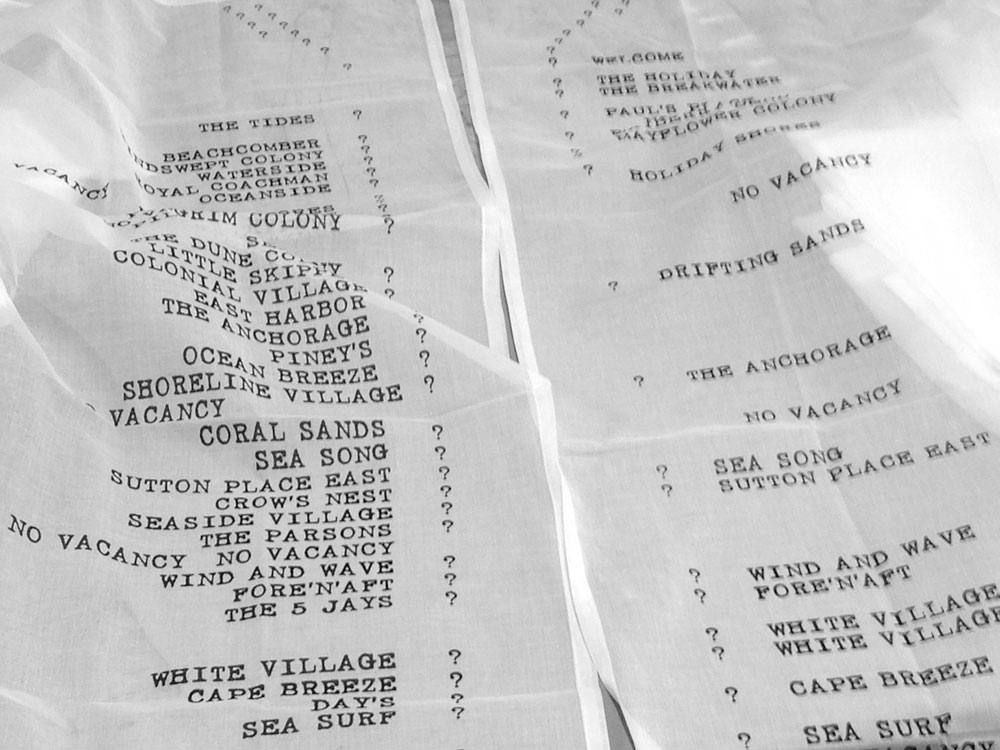 THE TIDES ?
BEACHCOMBER ?
COLONY ?
WATERSIDE ?
COACHMAN ?
VACANCY
OCEANSIDE
COLONY ?
THE DUNE
LITTLE SKIPPY ?
COLONIAL VILLAGE ?
EAST HARBOR
THE ANCHORAGE ?
PINEY'S
OCEAN BREEZE ?
SHORELINE VILLAGE ?
VACANCY
CORAL SANDS ?
SEA SONG ?
SUTTON PLACE EAST ?
CROW'S NEST ?
SEASIDE VILLAGE ?
THE PARSONS ?
NO VACANCY NO VACANCY
WIND AND WAVE ?
FORE'N'AFT ?
THE 5 JAYS ?
WHITE VILLAGE ?
CAPE BREEZE ?
DAY'S ?
SEA SURF ?
? WELCOME
? THE HOLIDAY
? THE BREAKWATER
? PAUL'S
? MAYFLOWER COLONY
? HOLIDAY SHORES
NO VACANCY
? DRIFTING SANDS
? THE ANCHORAGE
NO VACANCY
? SEA SONG
? SUTTON PLACE EAST
? WIND AND WAVE
? FORE'N'AFT
? WHITE VILLAGE
? WHITE VILLAGE
? CAPE BREEZE
? SEA SURF